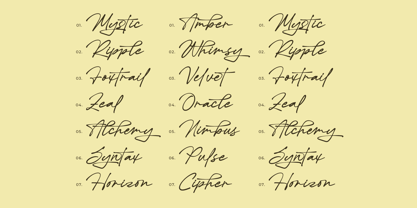 01. Mystic 01. Amber 01. Mystic
02. Ripple 02. Whimsy 02. Ripple
03. Foxtrail 03. Velvet 03. Foxtrail
04. Zeal 04. Oracle 04. Zeal
05. Alchemy 05. Nimbus 05. Alchemy
06. Syntax 06. Pulse 06. Syntax
07. Horizon 07. Cipher 07. Horizon